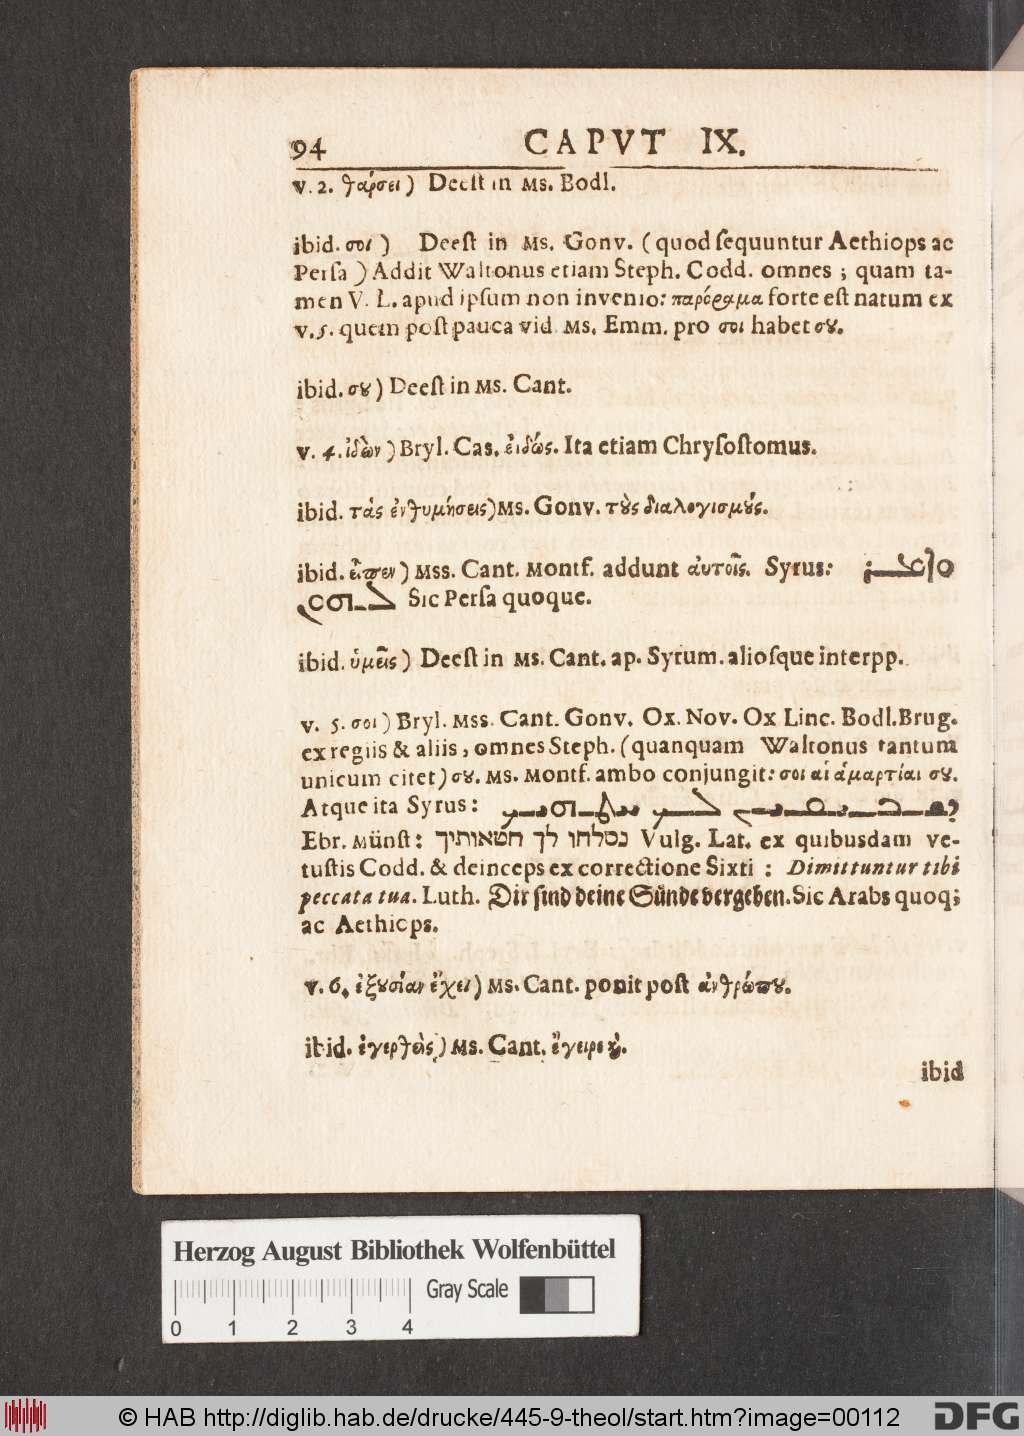 94 CAPVT IX.
v. 2. θάρσει) Deeſt in Ms. Bodl.
ibid. σοι) Deeſt in Ms. Gonv. (quod ſequuntur Aethiops ac
Perſa) Addit Waltonus etiam Steph. Codd. omnes; quam ta-
men V. L. apud ipſum non invenio: παρόραμα forte eſt natum ex
v. 5. quem poſt pauca vid. Ms. Emm. pro σοι habet σȣ.
ibid. σȣ) Deeſt in Ms. Cant.
v. 4. ἰδὼν) Bryl. Cas. εἰδώς. Ita etiam Chryſoſtomus.
ibid. τὰς ἐνθυμήσεις) Ms. Gonv. τȣ̀ς διαλογισμȣ́ς.
ibid. εἶπεν) Mss. Cant. Montf. addunt ἀυτοῖς. Syrus: ܘܐܡܪ
ܠܗܘܢ Sic Perſa quoque.
ibid. ὑμεῖς) Deeſt in Ms. Cant. ap. Syrum. alioſque interpp.
v. 5. σοι) Bryl. Mss. Cant. Gonv. Ox. Nov. Ox Linc. Bodl. Brug.
ex regiis & aliis, omnes Steph. (quanquam Waltonus tantum
unicum citet) σȣ. Ms. Montf. ambo conjungit: σοι αἱ ἁμαρτίαι σȣ.
Atque ita Syrus:
Ebr. Münſt: נסלחו לך חטאותיך Vulg. Lat. ex quibusdam ve-
tuſtis Codd. & deinceps ex correctione Sixti: Dimittuntur tibi
peccata tua. Luth. Dir ſind deine Sünde vergeben. Sic Arabs quoq;
ac Aethiops.
v. 6. ἐξȣσίαν ἔχει) Ms. Cant. ponit poſt ἀνθρώπȣ.
ibid. ἐγερθεὶς) Ms. Cant. ἔγειρε ϗ̀.
ibid
Herzog August Bibliothek Wolfenbüttel
Gray Scale
0 1 2 3 4
© HAB http://diglib.hab.de/drucke/445-9-theol/start.htm?image=00112 DFG